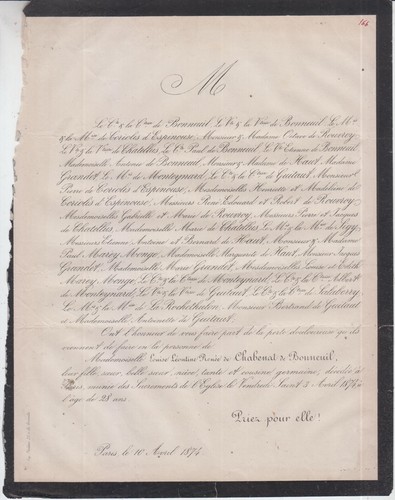 164
M
Le Cte & la Ctesse de Bonneuil, Le Vte & la Vtesse de Bonneuil, Le Mis
& la Mise de Coriolis d'Espinouse, Monsieur & Madame Octave de Rouvroy,
Le Vte & la Vtesse de Chatellus, Le Cte Paul de Bonneuil, Le Vte Etienne de Bonneuil
Mademoiselle Antoinette de Bonneuil, Monsieur & Madame de Haut, Madame
Grandet, La Mise de Monteynard, Le Cte & la Ctesse de Guitaut, Monsieur
Pierre de Coriolis d'Espinouse, Mesdemoiselles Henriette et Madeleine de
Coriolis d'Espinouse, Messieurs René Edouard et Robert de Rouvroy,
Mesdemoiselles Gabrielle et Marie de Rouvroy, Messieurs Pierre et Jacques
de Chatellus, Mademoiselle Marie de Chatellus, Le Mis & la Mise de
Messieurs Etienne Antoine et Bernard de Haut, Monsieur & Madame
Paul Marey Monge, Mademoiselle Marguerite de Haut, Monsieur Jacques
Grandet, Mademoiselle Marie Grandet, Mesdemoiselles Louise et Edith
Marey Monge, Le Cte & la Ctesse de Monteynard, Le Cte & la Ctesse
de Monteynard, Le Cte & la Ctesse de Guitaut, Le Cte & la Ctesse
Le Mis & la Mise de La Rochethulon, Monsieur Bertrand de Guitaut
et Mademoiselle Antoinette de Guitaut,
Ont l'honneur de vous faire part de la perte douloureuse qu'ils
viennent de faire en la personne de
Mademoiselle Louise Léontine Renée de Chabenat de Bonneuil,
leur fille, sœur, belle sœur, nièce, tante et cousine germaine, décédée à
Paris, munie des Sacrements de l'Eglise le Vendredi Saint 3 Avril 1874 à
l'âge de 28 ans.
Priez pour elle!
Paris le 10 Avril 1874.